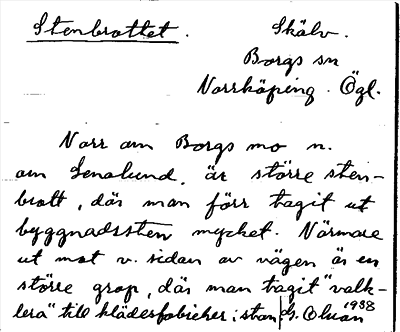 Stenbrottet.
Skälv.
Borgs sn
Norrköping. Ögl.
Norr om Borgs mo n.
om Lenalund, är större sten-
brott, där man förr tagit ut
byggnadssten mycket. Närmare
ut mot v. sidan av vägen är en
större grop, där man tagit "valk-
lera" till klädesfabriker i stan
1938